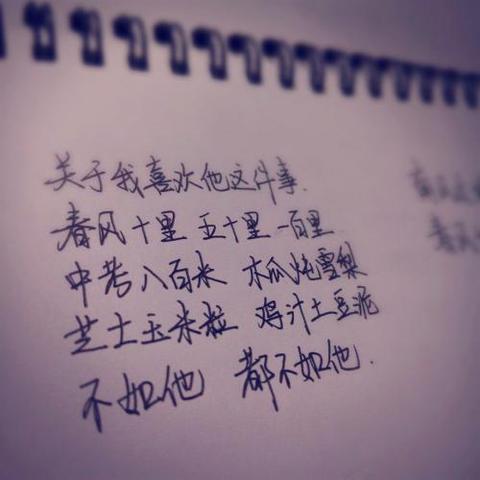 关于我喜欢他这件事.
春风十里 五十里 一百里
中考八百米 木瓜炖雪梨
芝士玉米粒 鸡汁土豆泥
不如他 都不如他.